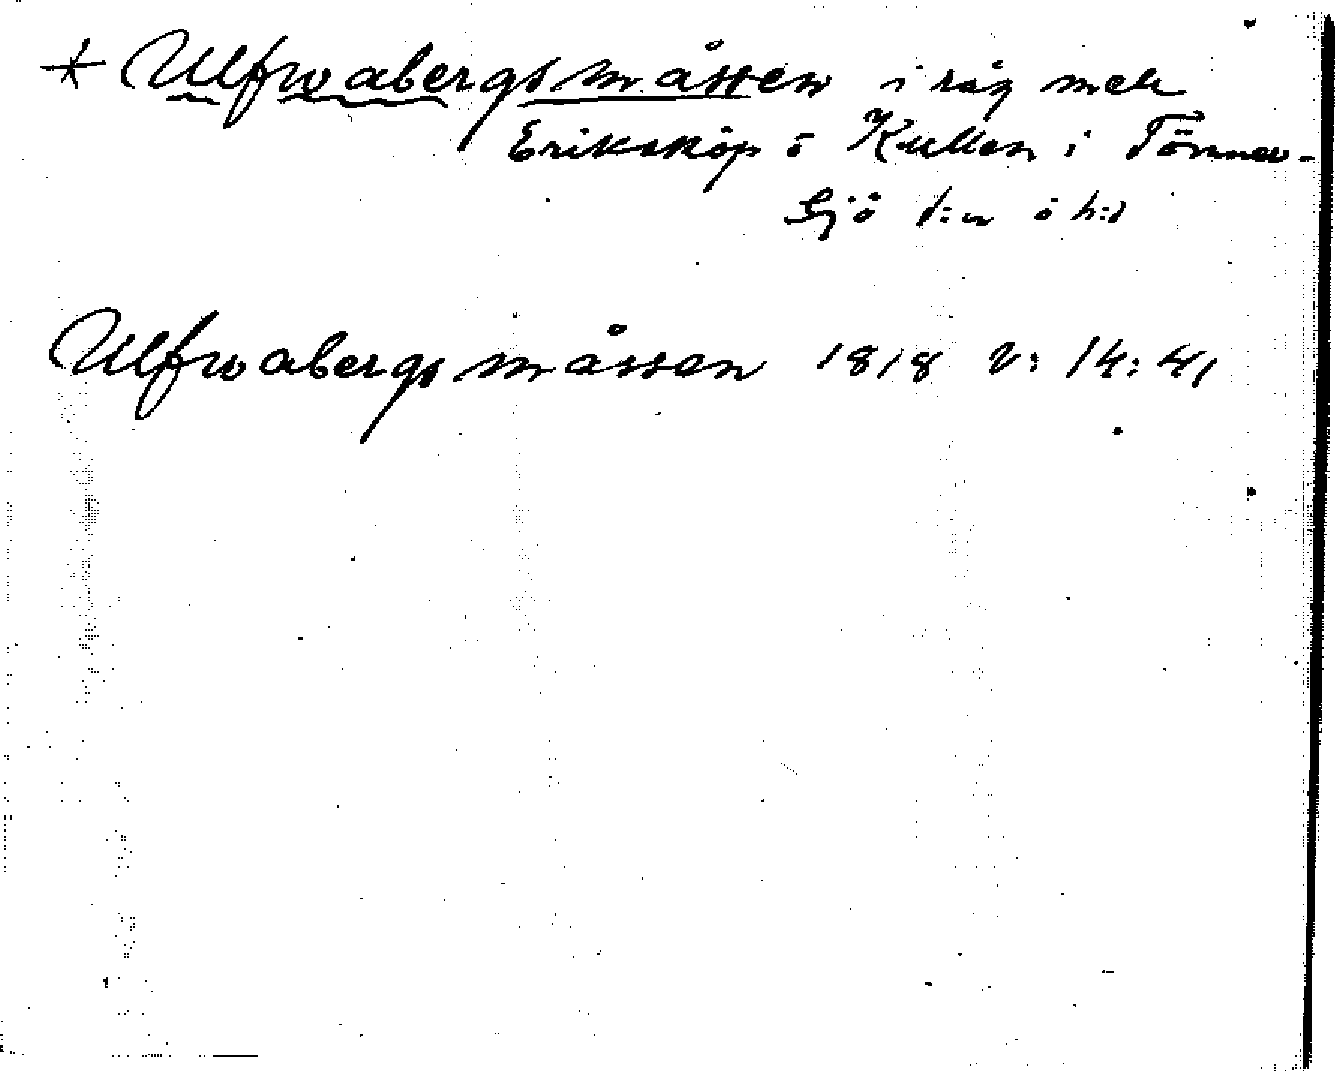 * Ulfwabergsmåssen i råg med
Eriksköp o Kullen i Tönner-
sjö s:n o h:d
Ulfwabergsmåssen 1818 V: 14: 41